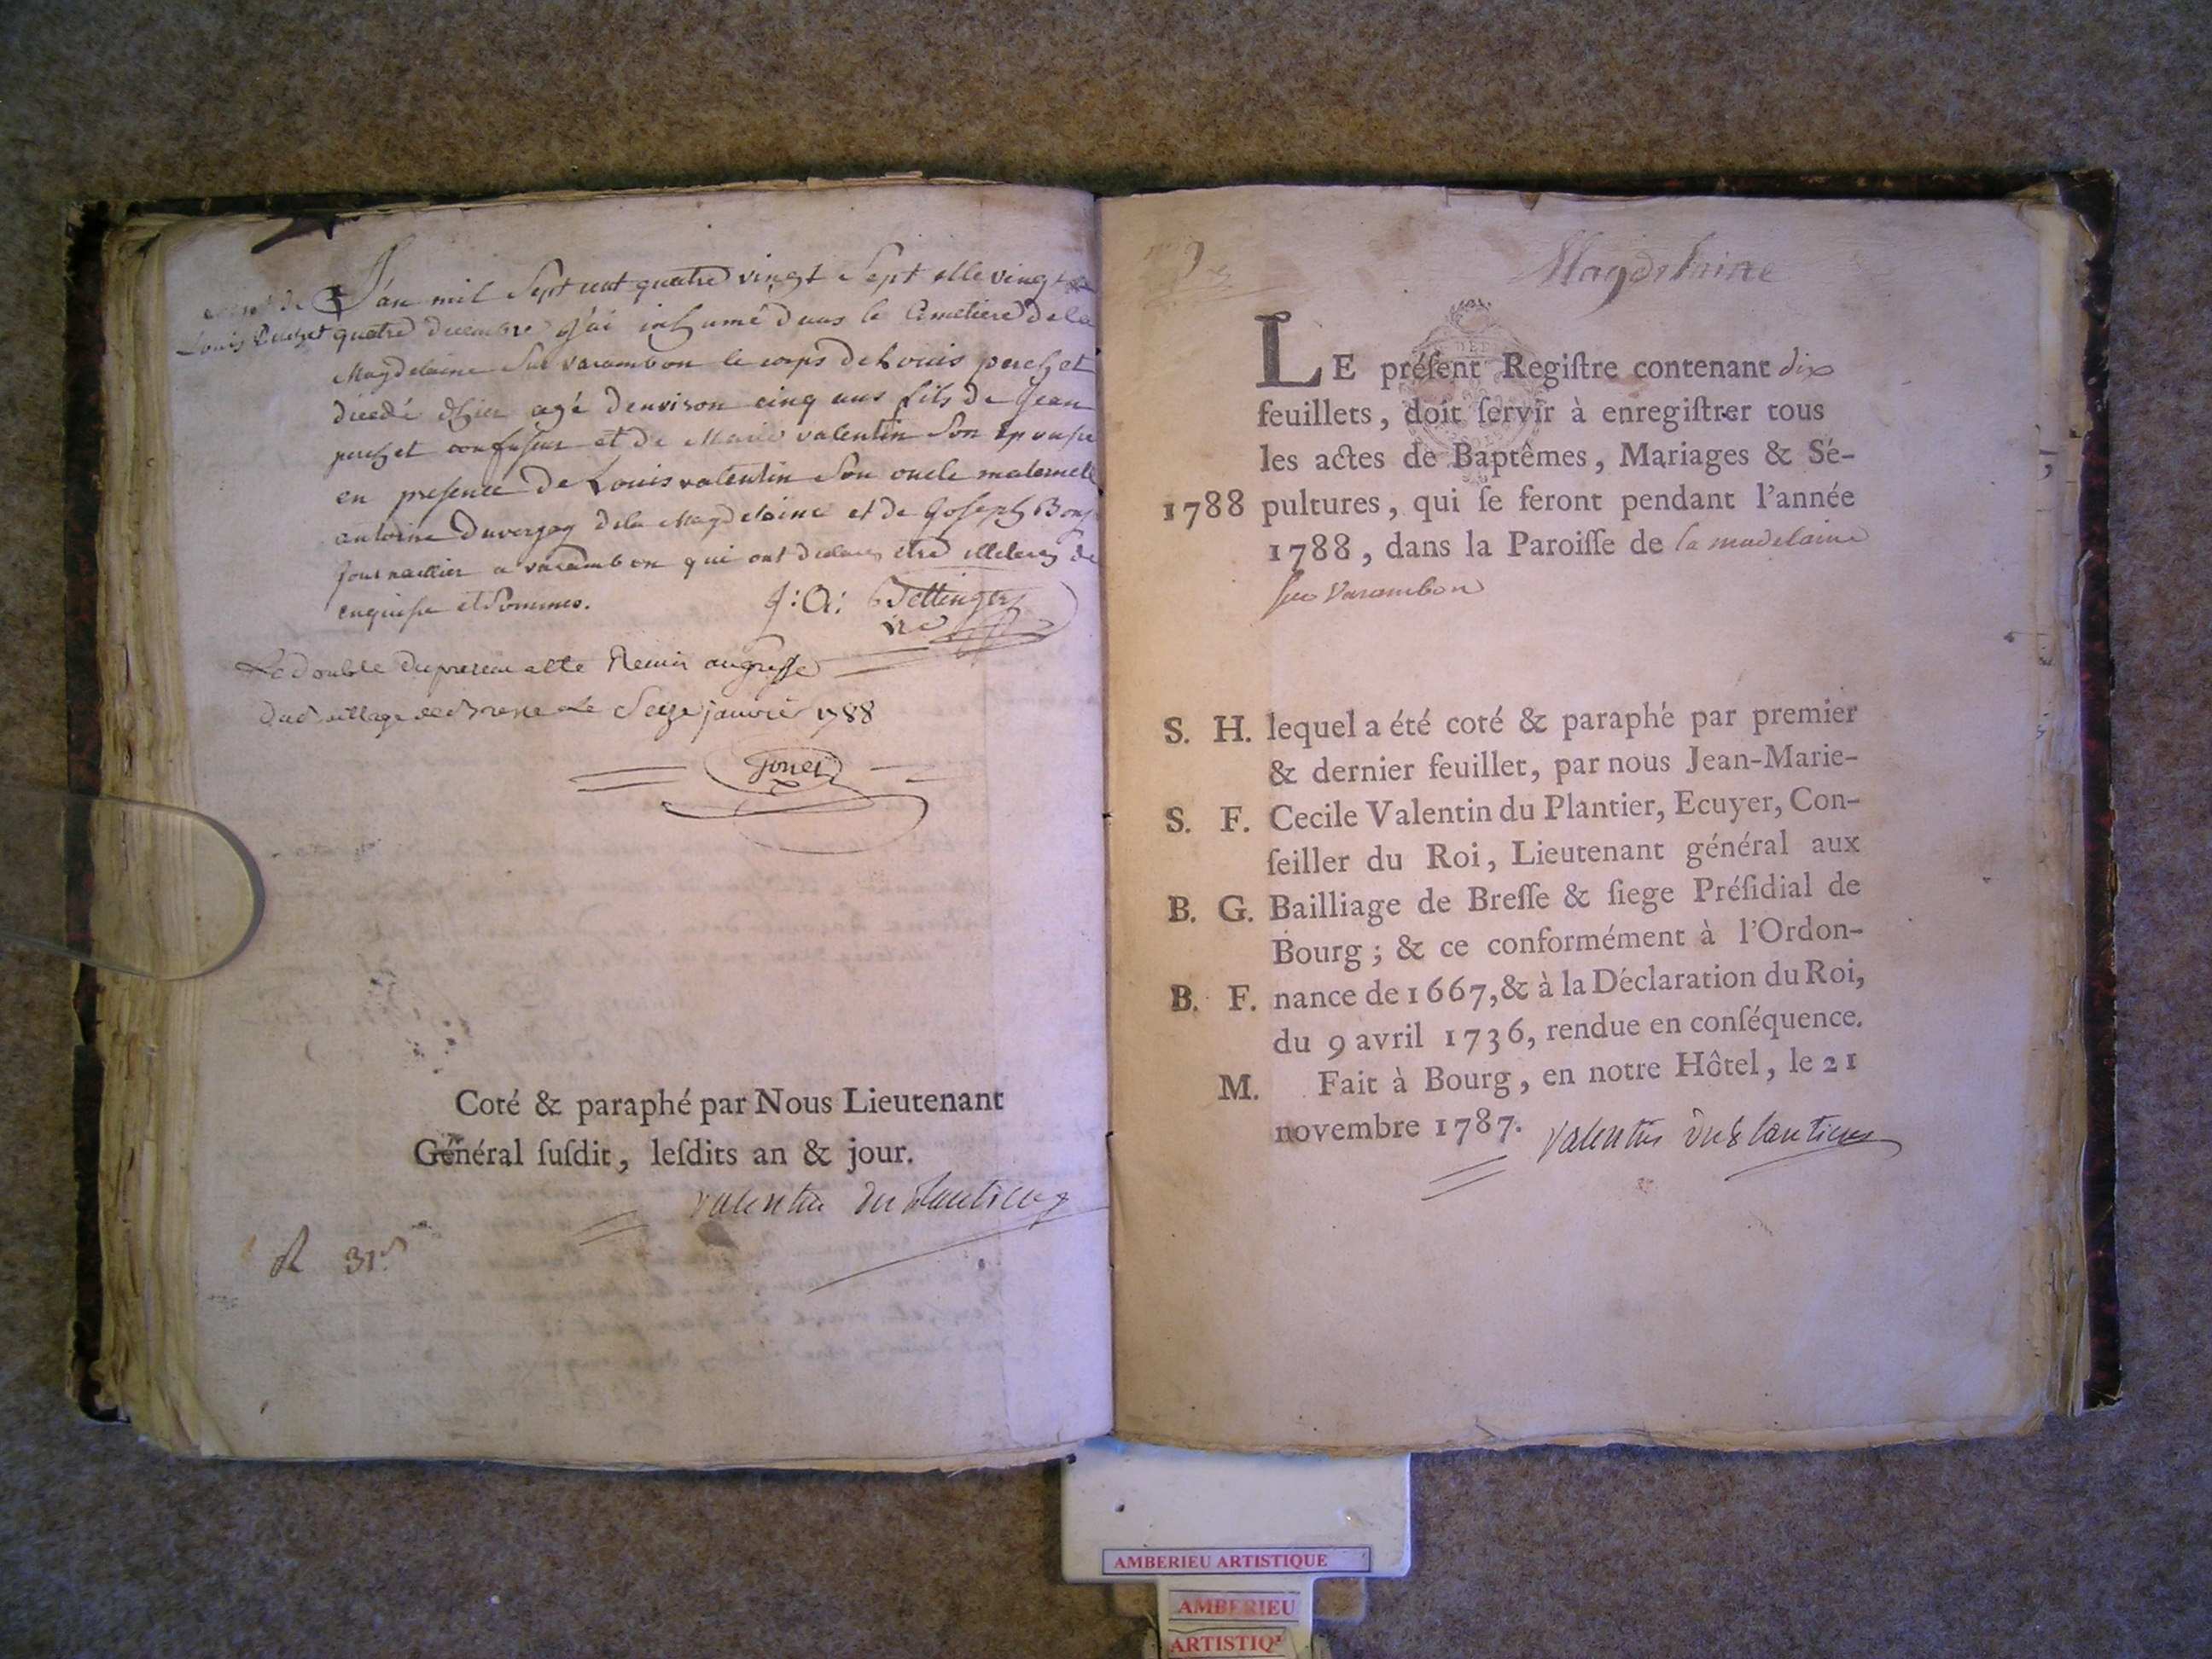 L'an mil Sept cent quatre vingt Sept et le vingt
Louis Perchet quatre decembre J'ai inhumé dans le Cimetiere de la
Magdelaine Sur Varambon le corps de Louis perchet
décédé hier agé d'environ cinq ans fils de Jean
perchet et de Marie valentin Son epouse
en presence de Louis valentin Son oncle maternel
antoine Duverjay de la Magdelaine et de Joseph
a varambon qui ont declarés etre illeteres de
enquis et Sommes.
Le double du present
Seize janvier 1788
Coté & paraphé par Nous Lieutenant
Général ſuſdit, leſdits an & jour.
valentin du plantier
R 31
Magdelaine
LE préſent Regiſtre contenant dix
feuillets, doit ſervir à enregiſtrer tous
les actes de Baptêmes, Mariages & Sé-
1788 pultures, qui ſe feront pendant l'année
1788, dans la Paroiſſe de la madelaine
sur Varambon
S. H. lequel a été coté & paraphé par premier
& dernier feuillet, par nous Jean-Marie-
S. F. Cecile Valentin du Plantier, Ecuyer, Con-
ſeiller du Roi, Lieutenant général aux
B. G. Bailliage de Breſſe & ſiege Préſidial de
Bourg ; & ce conformément à l'Ordon-
B. F. nance de 1667, & à la Déclaration du Roi,
du 9 avril 1736, rendue en conſéquence.
M. Fait à Bourg, en notre Hôtel, le 21
novembre 1787. valentin du plantier
AMBERIEU ARTISTIQUE
AMBERIEU
ARTISTIQ